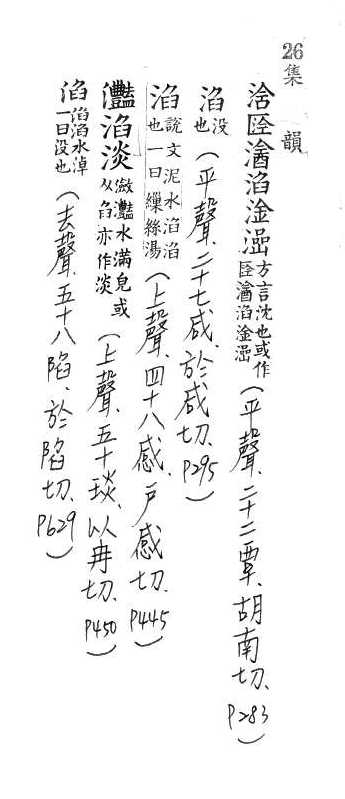 26集韻
浛𨟴㵤淊淦𣽎方言沈也或作𨟴㵤淊淦𣽎(平聲、二十二覃、胡南切、P283)
淊没也(平聲、二十七咸、於咸切、P295)
淊說文泥水淊淊也一曰繅絲湯(上聲、四十八感、戶感切、P445)
灩淊淡瀲灩水滿皃或从臽亦作淡(上聲、五十琰、以冉切、P450)
淊淊淊水淖一曰没也(去聲、五十八陷、於陷切、P629)